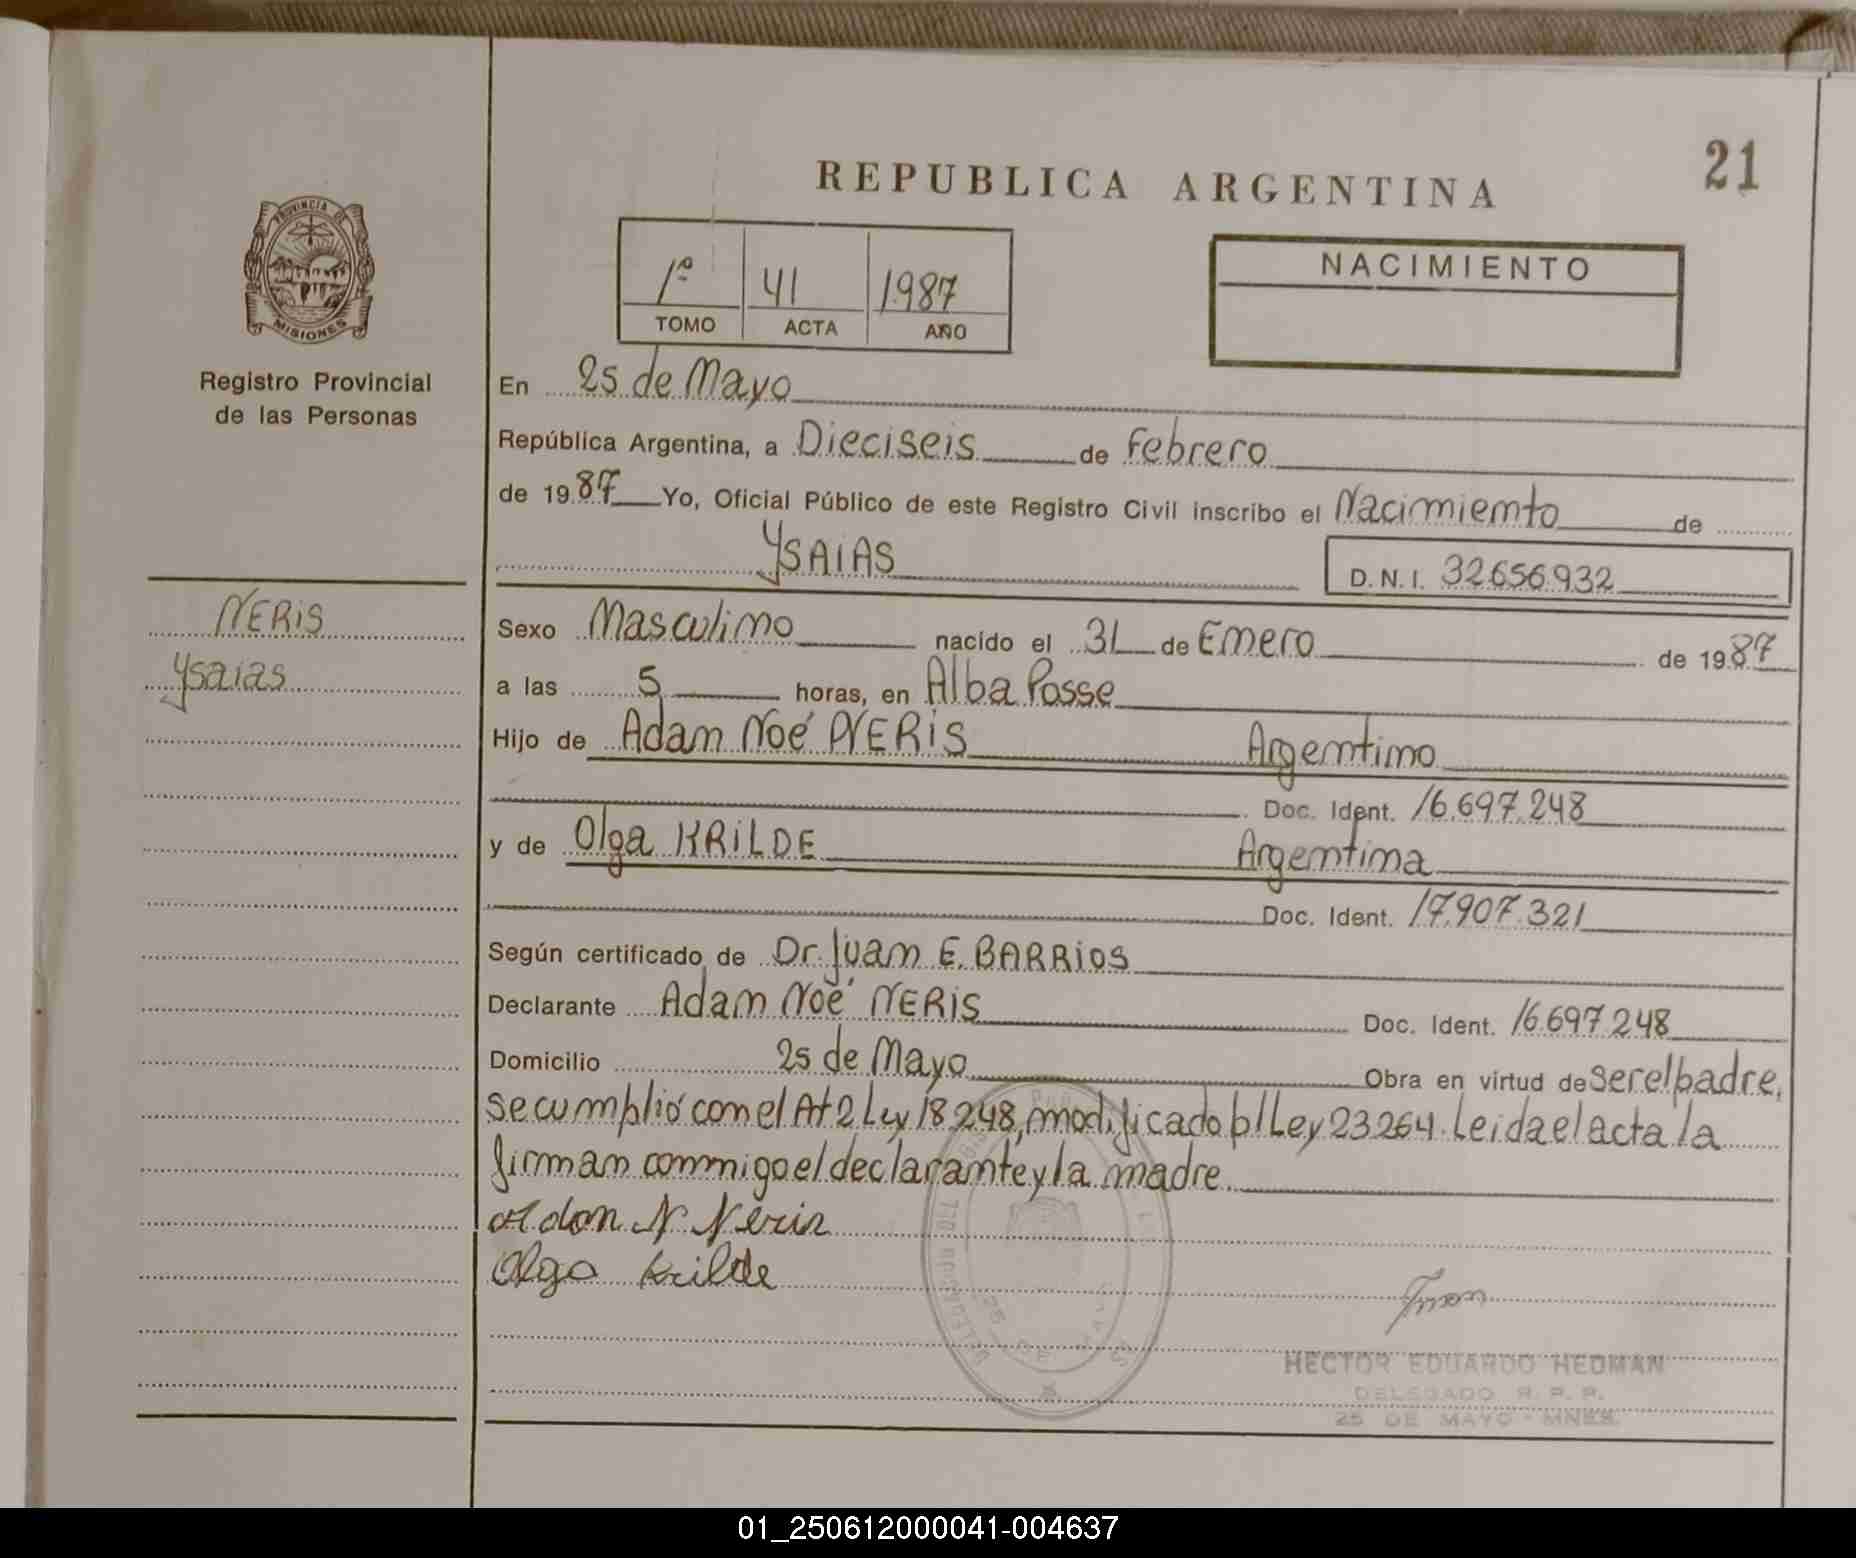 REPUBLICA ARGENTINA
21
PROVINCIA DE
MISIONES
Registro Provincial
de las Personas
1º 41 1987
TOMO ACTA AÑO
NACIMIENTO
En 25 de Mayo
República Argentina, a Dieciseis de Febrero
de 1987 Yo, Oficial Público de este Registro Civil inscribo el Nacimiento de
YSAIAS
D.N.I. 32656.932
NERIS
Ysaias
Sexo Masculino nacido el 31 de Enero de 1987
a las 5 horas, en Alba Posse
Hijo de Adam Noé NERIS Argentino
Doc. Ident. 16.697.248
y de Olga KRILDE Argentina
Doc. Ident. 17.907.321
Según certificado de Dr. Juan E. BARRIOS
Declarante Adam Noé NERIS Doc. Ident. 16.697.248
Domicilio 25 de Mayo Obra en virtud de ser el padre,
se cumplió con el At 2 Ley 18.248, modificado p/ Ley 23264. Leida el acta la
firman conmigo el declarante y la madre.
Adan N Neris
Olga Krilde
HECTOR EDUARDO HEDMAN
DELEGADO R. P. P.
25 DE MAYO - MNES.
01_250612000041-004637